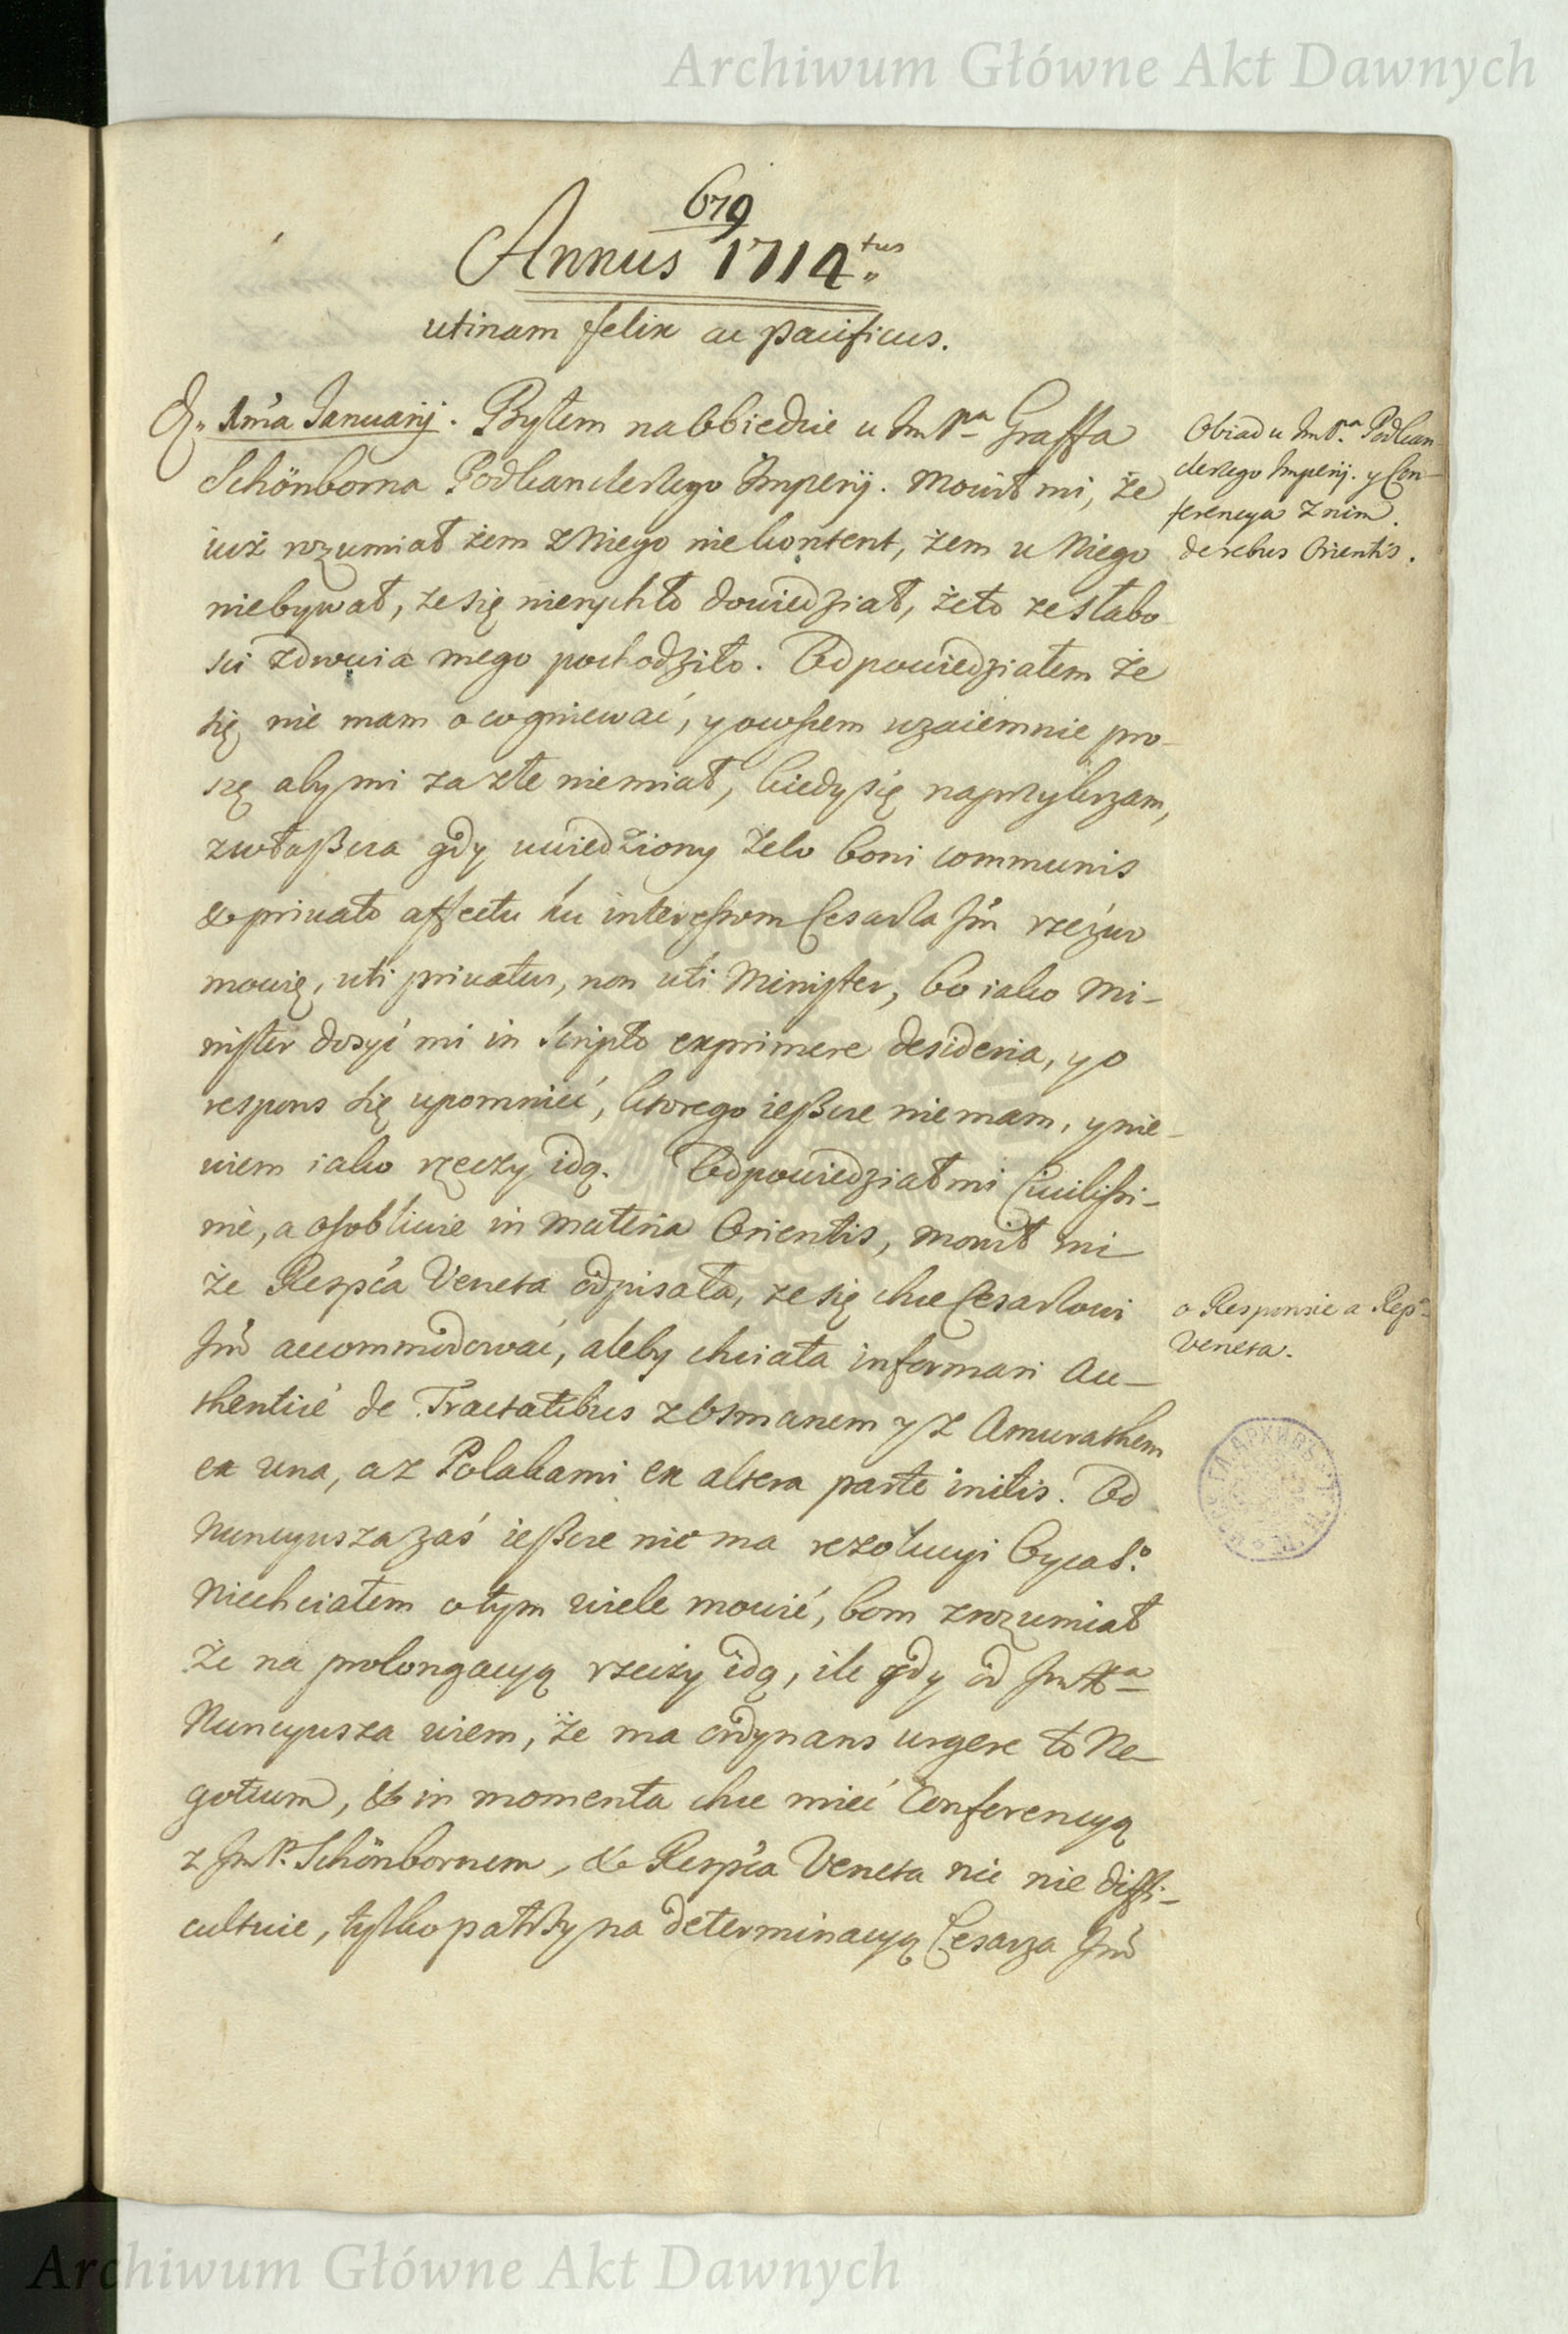 Archiwum Główne Akt Dawnych
679
Annus 1714tus
utinam felix ac pacificus.
D. 1ma Januarij. Byłem na Obiedzie u Jm Pa Graffa
Schönborna Podkanclerzego Imperij. Mowił mi, że
iuż rozumiał żem z Niego nie kontent, żem u Niego
niebywał, że się nierychło dowiedział, że to ze słabo
sci zdrowia mego pochodziło. Odpowiedziałem że
się nie mam o co gniewać, y owszem wzaiemnie pro-
szę aby mi za złe niemiał, kiedy się naprzykrzam,
zwłaßcza gdy uwiedziony zelo boni communis
& privato affectu ku interessom Cesarza Jm̃ rzeżwo
mowię, uti privatus, non uti Minister, bo iako Mi-
nister dosyć mi in scripto exprimere desideria, y o
respons się upomnieć, ktorego ießcze nie mam, y nie-
wiem iako rzeczy idą. Odpowiedział mi Civilissi-
mè, a osobliwie in materia Orientis, mowił mi
że Respca Veneta odpisała, że się chce Cesarzowi
Jm̃ accommodować, aleby chciała informari Au-
thenticè de Tractatibus z Osmanem y z Amurathem
ex una, a z Polakami ex altera parte initis. Od
Nuncyusza zaś ießcze nie ma rezolucyi
Niechciałem o tym wiele mowić, bom zrozumiał
że na prolongacyą rzeczy idą, ile gdy od Jm Xa
Nuncyusza wiem, że ma ordynans urgere to Ne-
gotium, & in momenta chce mieć Conferencyą
z Jm P. Schönbornem, & Respca Veneta nic nie diffi-
cultuie, tylko patrzy na determinacyą Cesarza Jm̃
Obiad u Jm Pa Podkan-
clerzego Imperij. y Con-
ferencya z nim.
de rebus Orientis.
o Responsie a Rep
Veneta.
Archiwum Główne Akt Dawnych